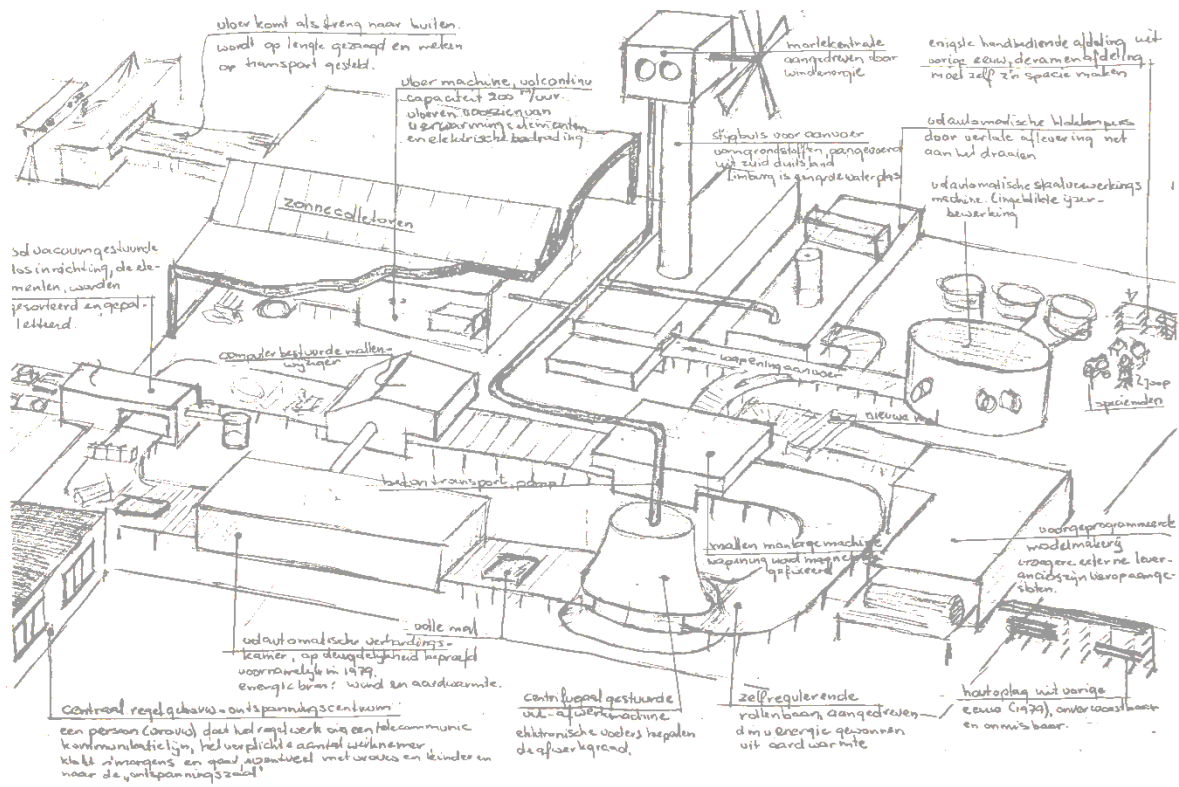 vloer komt als streng naar buiten.
wordt op lengte gezaagd en meteen
op transport gesteld.
vloer machine, volcontinu
capaciteit 200 m/uur.
vloeren voorzien van
verwarmings elementen
en elektrische bedrading.
mortelcentrale
aangedreven door
windenergie
enigste handbediende afdeling uit
vorige eeuw, de ramenafdeling
moet zelf z'n specie maken
stijgbuis voor aanvoer
van grondstoffen, aangevoerd
uit zuid duitsland
Limburg is een grote waterplas
volautomatische blokkenpers
door vertale aflevering net
aan het draaien
volautomatische staalverwerkings
machine. Eingeblikte ijzer-
bewerking
zonnecollectoren
vacuumgestuurde
los inrichting, de ele-
menten, worden
gesorteerd en gepal-
letteerd.
computer bestuurde mallen-
wijziger
wapening aanvoer
Joop
speciemolen
nieuwe
beton transport pomp
mallen montage machine
wapening word magnetisch
gefixeerd
voorgeprogrammeerde
modelmakerij
vroegere externe lever-
anciers zijn hierop aange-
sloten.
volle mal
volautomatische verhardings-
kamer, op deugdelijkheid beproefd
voornamelijk in 1979.
energie bron: wind en aardwarmte.
centraal regelgebouw - ontspanningscentrum
een persoon (vrouw) doet het regelwerk via een telecommunic
kommunikatielijn, het verplichte aantal werknemer
klokt 's morgens en gaat eventueel met vrouw en kinderen
naar de "ontspanningszaal"
centrifugaal gestuurde
vul-afwerkmachine
elektronische voelers bepalen
de afwerkgraad.
zelfregulerende
rollenbaan, aangedreven
d.m.v. energie gewonnen
uit aardwarmte
houtopslag uit vorige
eeuw (1979), onverwoestbaar
en onmisbaar.